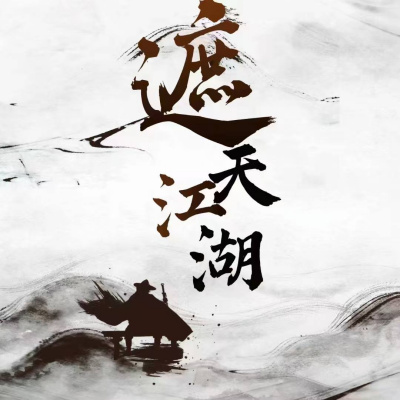 遮天江湖